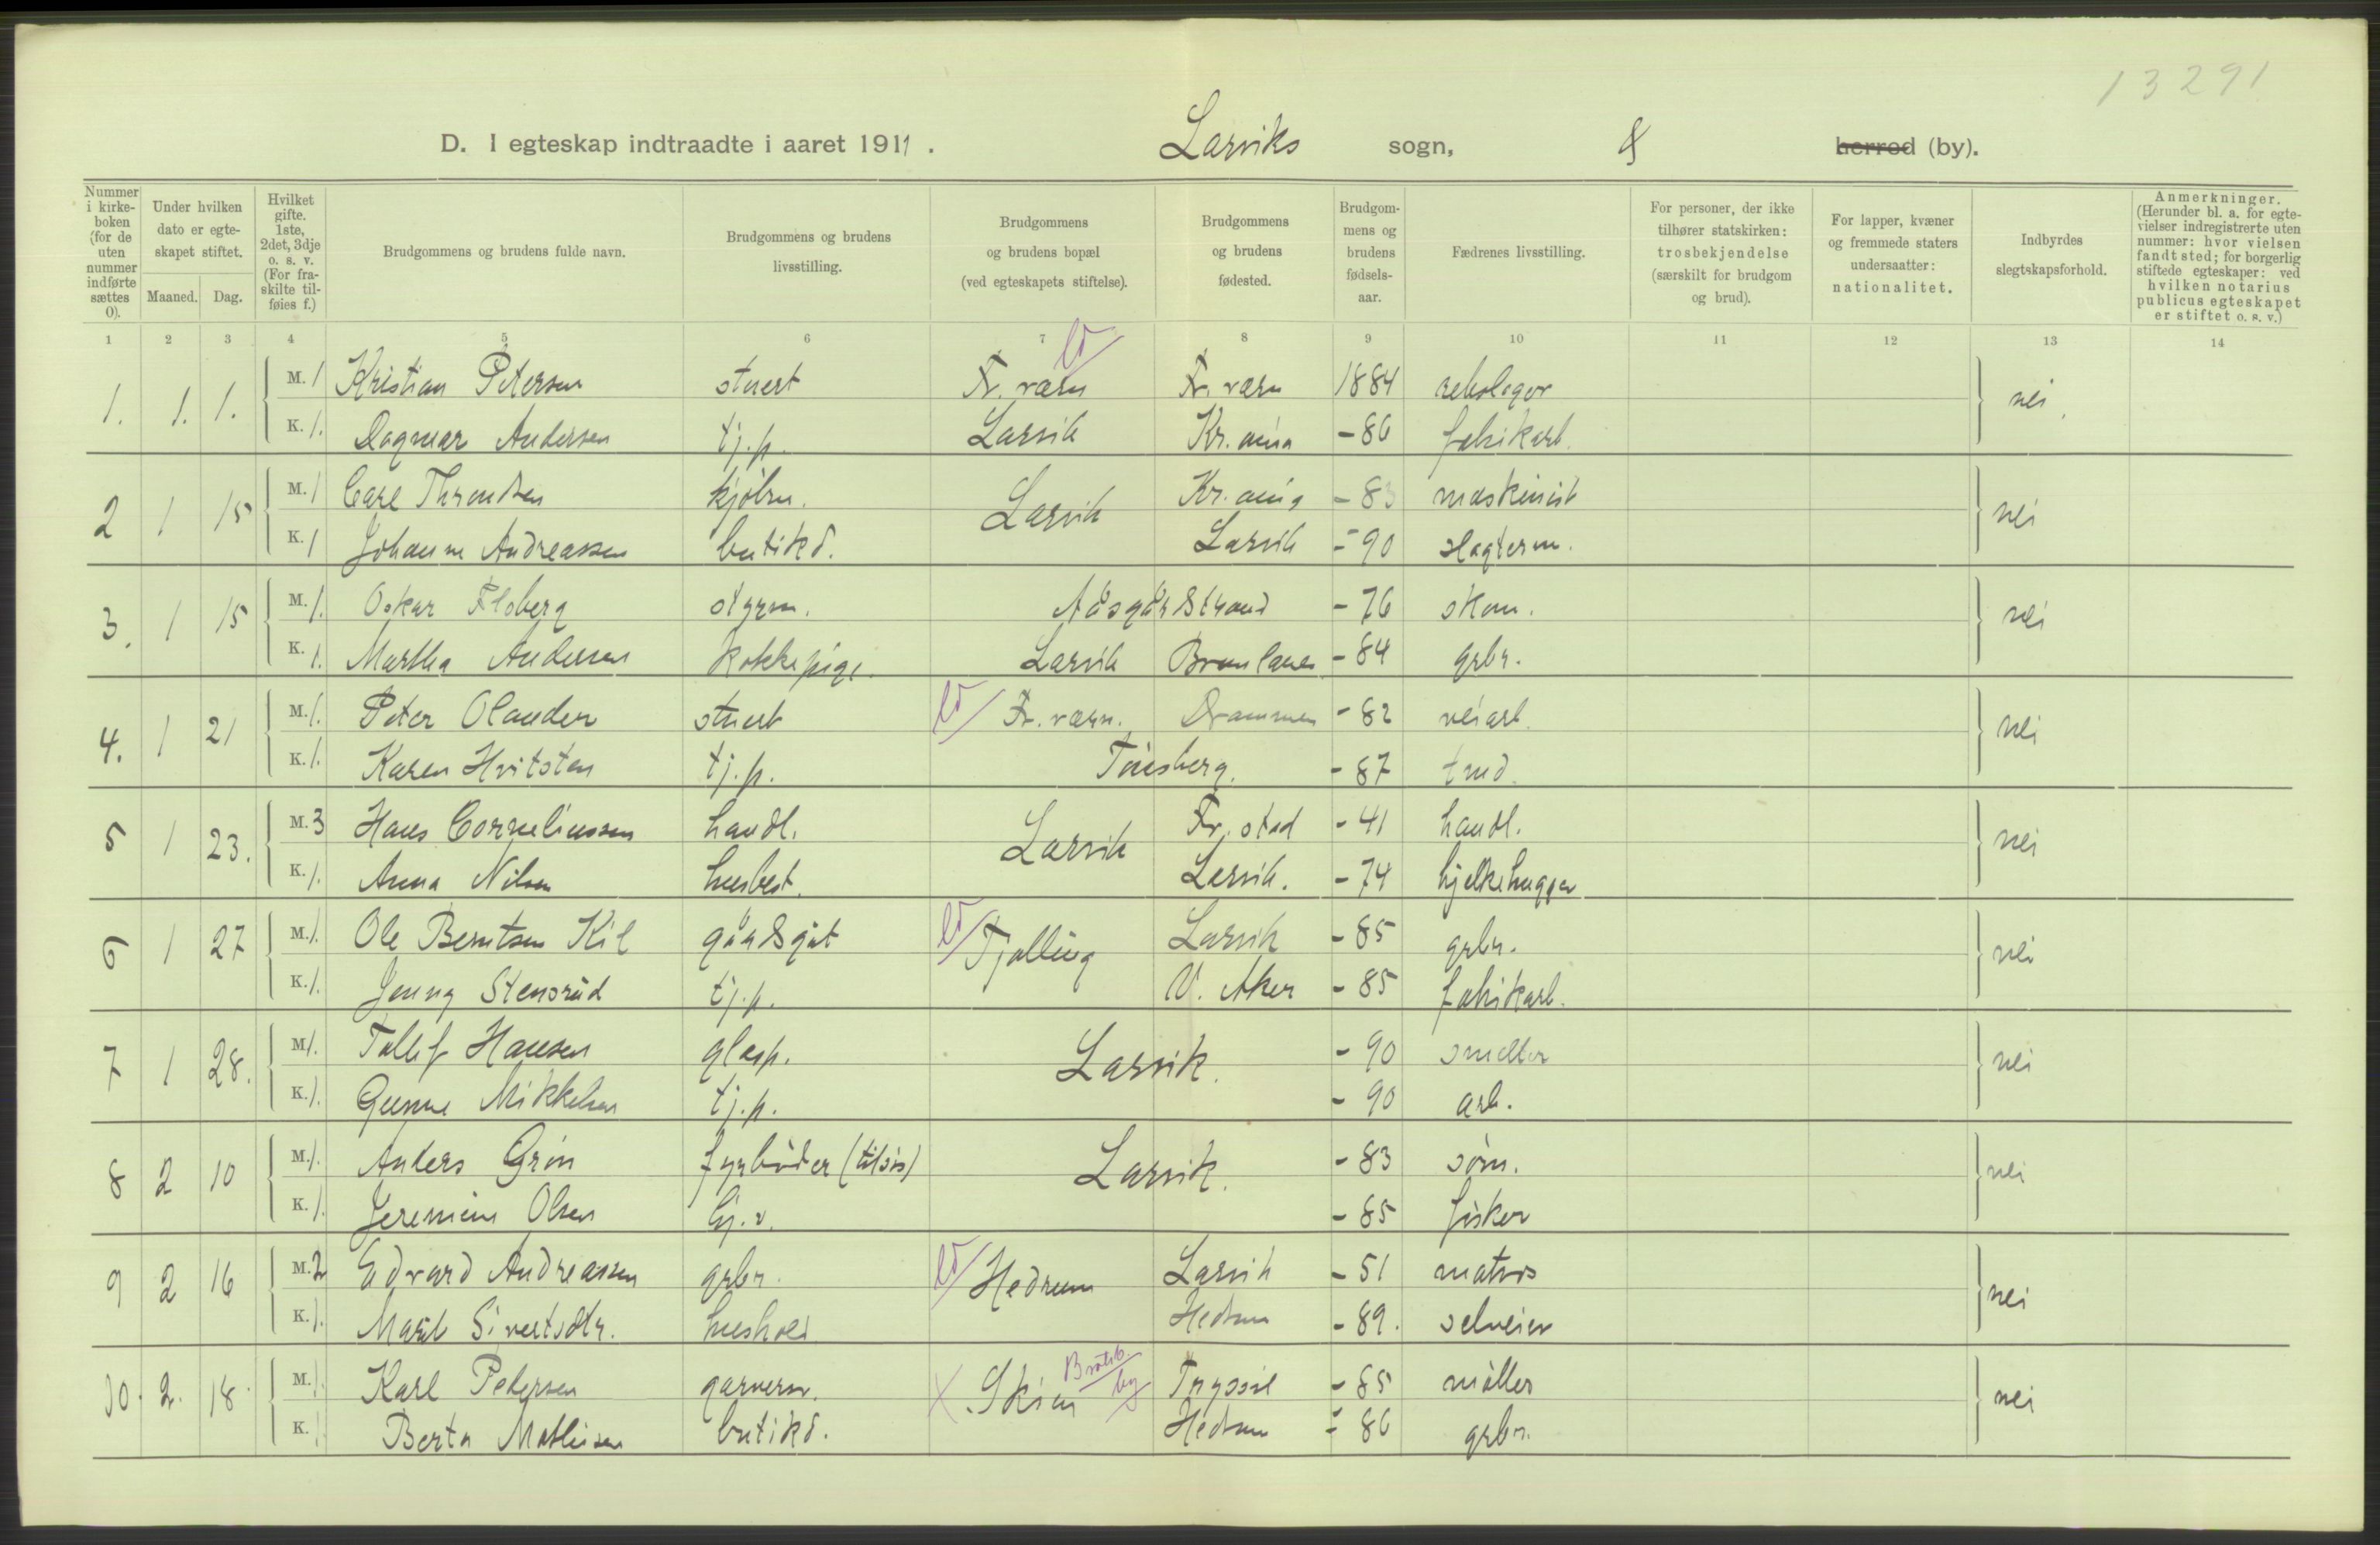 13291
D. I egteskap indtraadte i aaret 1911. Larviks sogn, herred (by).
Nummer i kirkeboken (for de uten nummer indførte sættes 0).
Under hvilken dato er egteskapet stiftet.
Maaned. Dag.
Hvilket gifte. 1ste, 2det, 3dje o. s. v. (For fraskilte tilføies f.)
Brudgommens og brudens fulde navn.
Brudgommens og brudens livsstilling.
Brudgommens og brudens bopæl (ved egteskapets stiftelse).
Brudgommens og brudens fødested.
Brudgommens og brudens fødselsaar.
Fædrenes livsstilling.
For personer, der ikke tilhører statskirken: trosbekjendelse (særskilt for brudgom og brud).
For lapper, kvæner og fremmede staters undersaatter: nationalitet.
Indbyrdes slegtskapsforhold.
Anmerkninger. (Herunder bl. a. for egtevielser indregistrerte uten nummer: hvor vielsen fandt sted; for borgerlig stiftede egteskaper: ved hvilken notarius publicus egteskapet er stiftet o. s. v.)
1 2 3 4 5 6 7 8 9 10 11 12 13 14
1. 1. 1. M. 1 Kristian Petersen stuert Fr. værn Fr. værn 1884 rebslager nei.
K. 1. Dagmar Andersen tj.p. Larvik Kr.ania - 86 fabrikarb.
2 1 15 M. 1 Carl Throndsen kjølsm. Larvik Kr.ania - 83 maskinist nei
K. 1 Johanne Andreassen butikd. Larvik - 90 slagterm.
3. 1 15 M. 1. Oskar Floberg styrm. Aasgårdstrand - 76 skom. nei
K. 1. Martha Andersen kokkepige. Larvik Brunlanes - 84 grbr.
4. 1 21 M. 1. Peter Olander stuert Fr. værn. Drammen - 82 veiarb. nei
K. 1. Karen Hvitsten tj.p. Tönsberg. - 87
5 1 23. M. 3 Hans Corneliussen handl. Larvik Fr. stad - 41 handl. nei
K. 1. Anna Nilsen husbest. Larvik. - 74 bjelkehugger
6 1 27 M. 1. Ole Berntsen Kil gårdsgut Tjølling Larvik - 85 grbr. nei
K. 1. Jenny Stensrud tj.p. V. Aker - 85 fabrikarb.
7 1 28. M. 1. Tollef Hansen glasp. Larvik. - 90 smelter nei
K. 1. Gunne Mikkelsen tj.p. - 90 arb.
8 2 10 M. 1. Anders Grön fyrbøder (tilsjøs) Larvik. - 83 söm. nei
K. 1. Olsen - 85 fisker
9 2 16 M. 2 Edvard Andreassen grbr. Hedrum Larvik - 51 matros nei
K. 1. Marit Sivertsdtr. hushold Hedrum - 89. selveier
10. 2. 18. M. 1. Karl Pedersen garversv. Skien Bratsb. by Trysil - 85 möller nei
K. 1 Berta Mathisen butikd. Hedrum - 86 grbr.